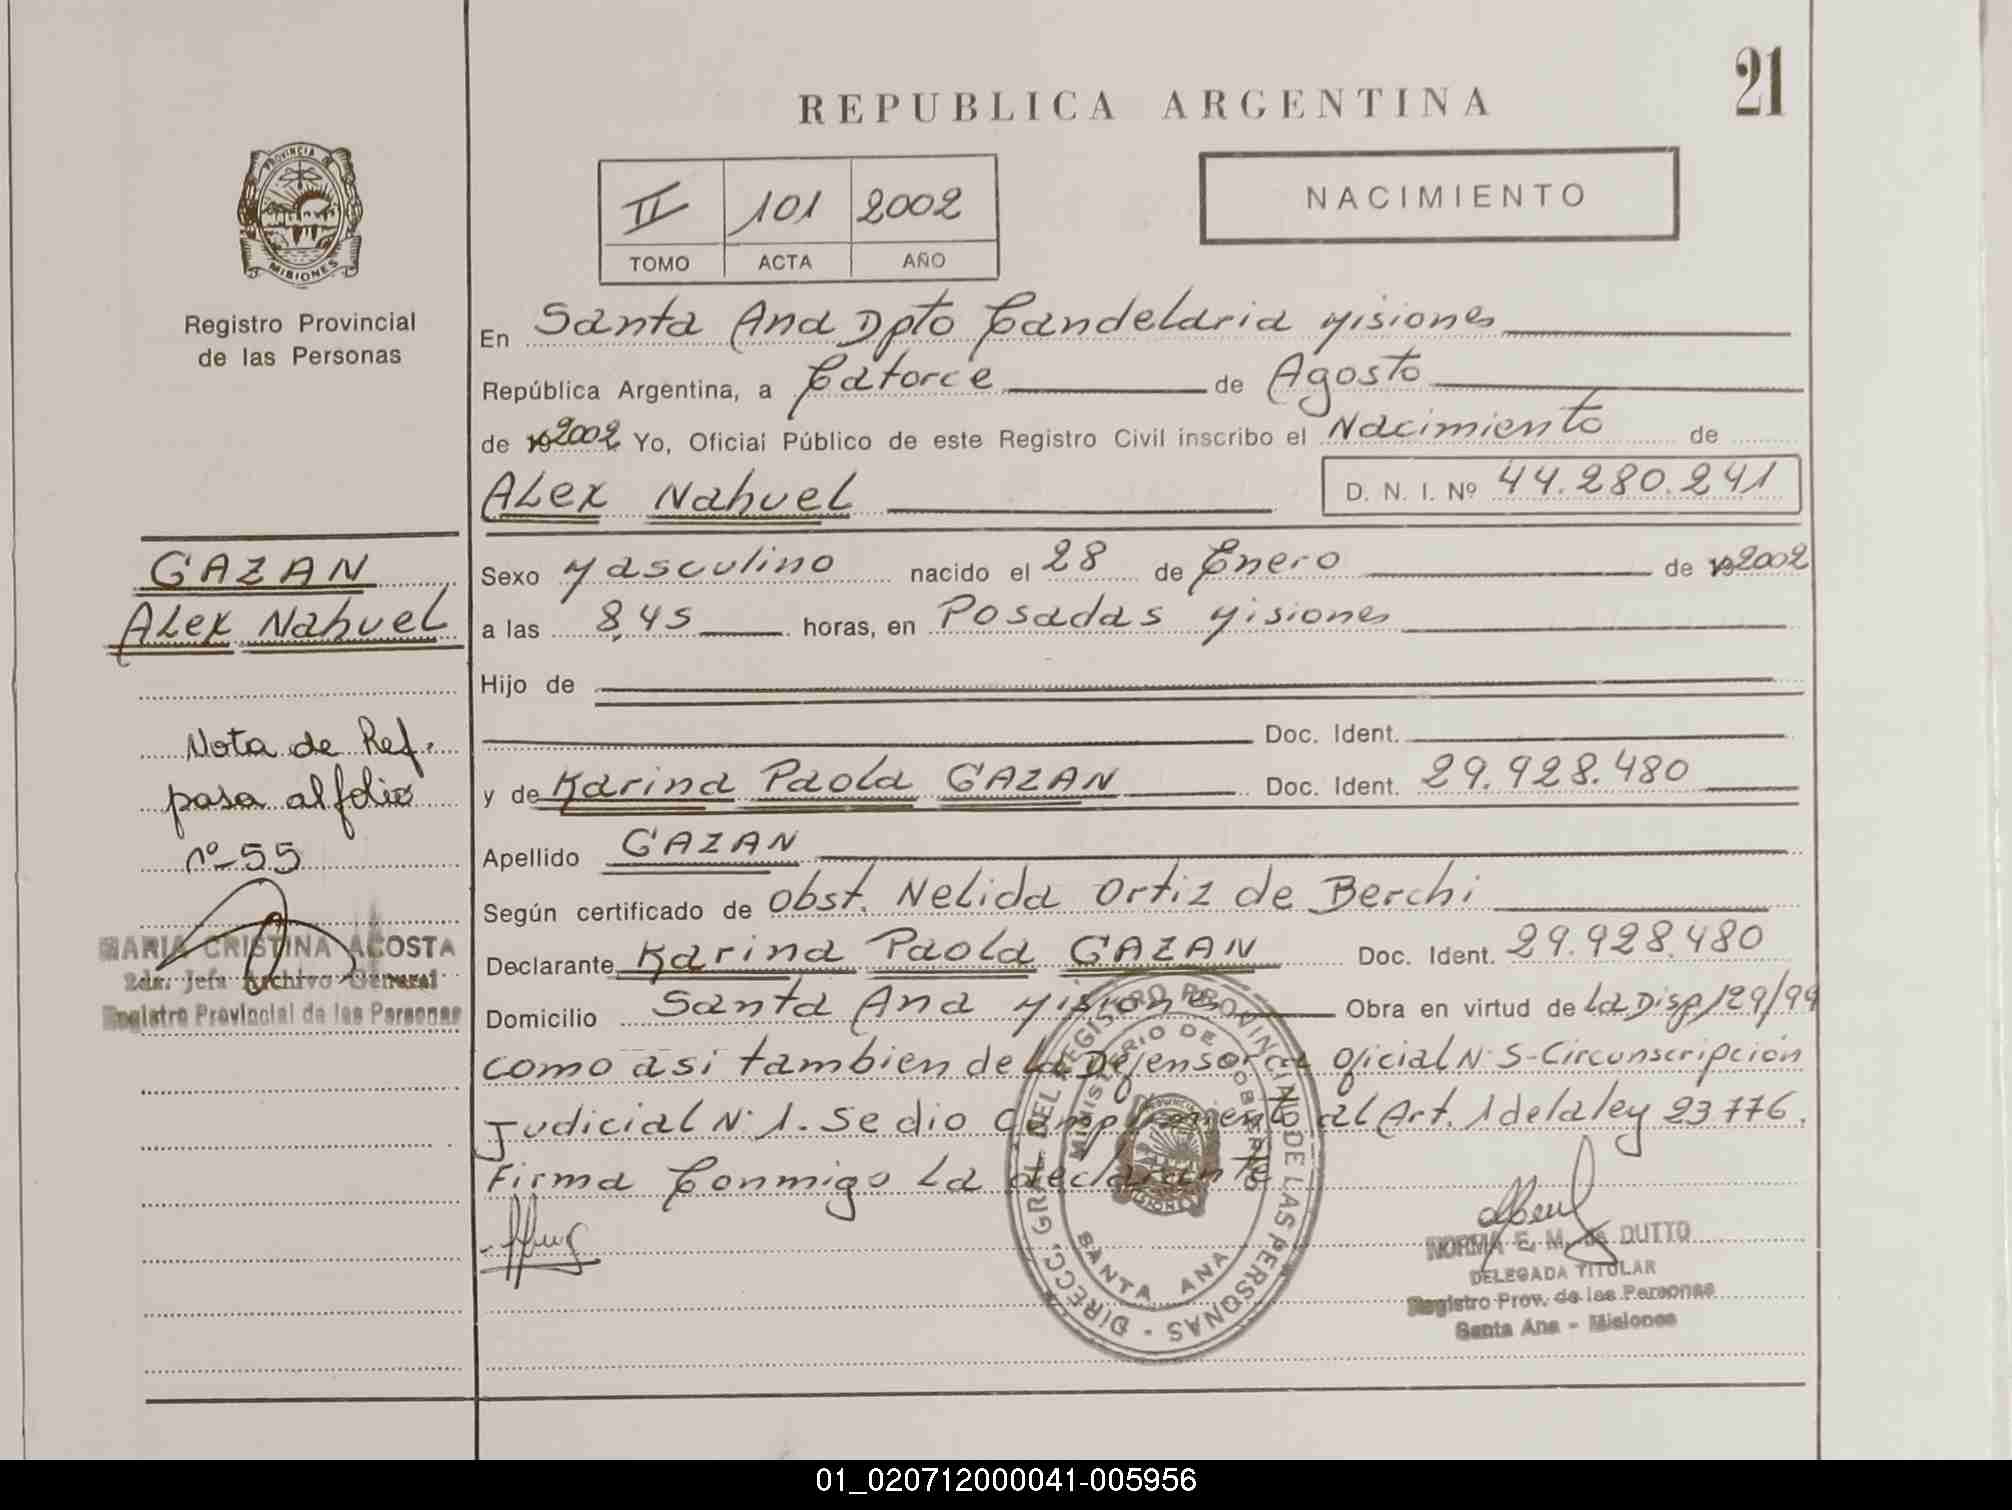 21
REPUBLICA ARGENTINA
PROVINCIA DE
MISIONES
II 101 2002
TOMO ACTA AÑO
NACIMIENTO
Registro Provincial
de las Personas
En Santa Ana Dpto Candelaria Misiones
República Argentina, a Catorce de Agosto
de 2002 Yo, Oficial Público de este Registro Civil inscribo el Nacimiento de
ALex Nahuel D. N. I. Nº 44.280.241
GAZAN
ALex NahueL
Sexo Masculino nacido el 28 de Enero de 2002
a las 8,45 horas, en Posadas Misiones
Hijo de
Doc. Ident.
y de Karina Paola GAZAN Doc. Ident. 29.928.480
Nota de Ref.
pasa al folio
nº 55
Apellido GAZAN
Según certificado de Obst. Nelida Ortiz de Berchi
Declarante Karina Paola GAZAN Doc. Ident. 29.928.480
Domicilio Santa Ana Misiones Obra en virtud de La Disp 129/99
como asi tambien de la Defensoria Oficial N: 5-Circunscripción
Judicial N: 1. Se dio Cumplimento al Art. 1 de la ley 23776.
Firma Conmigo La declarante
MARIA CRISTINA ACOSTA
2da. Jefa Archivo General
Registro Provincial de las Personas
DIRECC. GRAL. DEL REGISTRO PROVINCIAL DE LAS PERSONAS
MINISTERIO DE GOBIERNO
SANTA ANA
NORMA E. M. de DUTTO
DELEGADA TITULAR
Registro Prov. de las Personas
Santa Ana - Misiones
01_020712000041-005956